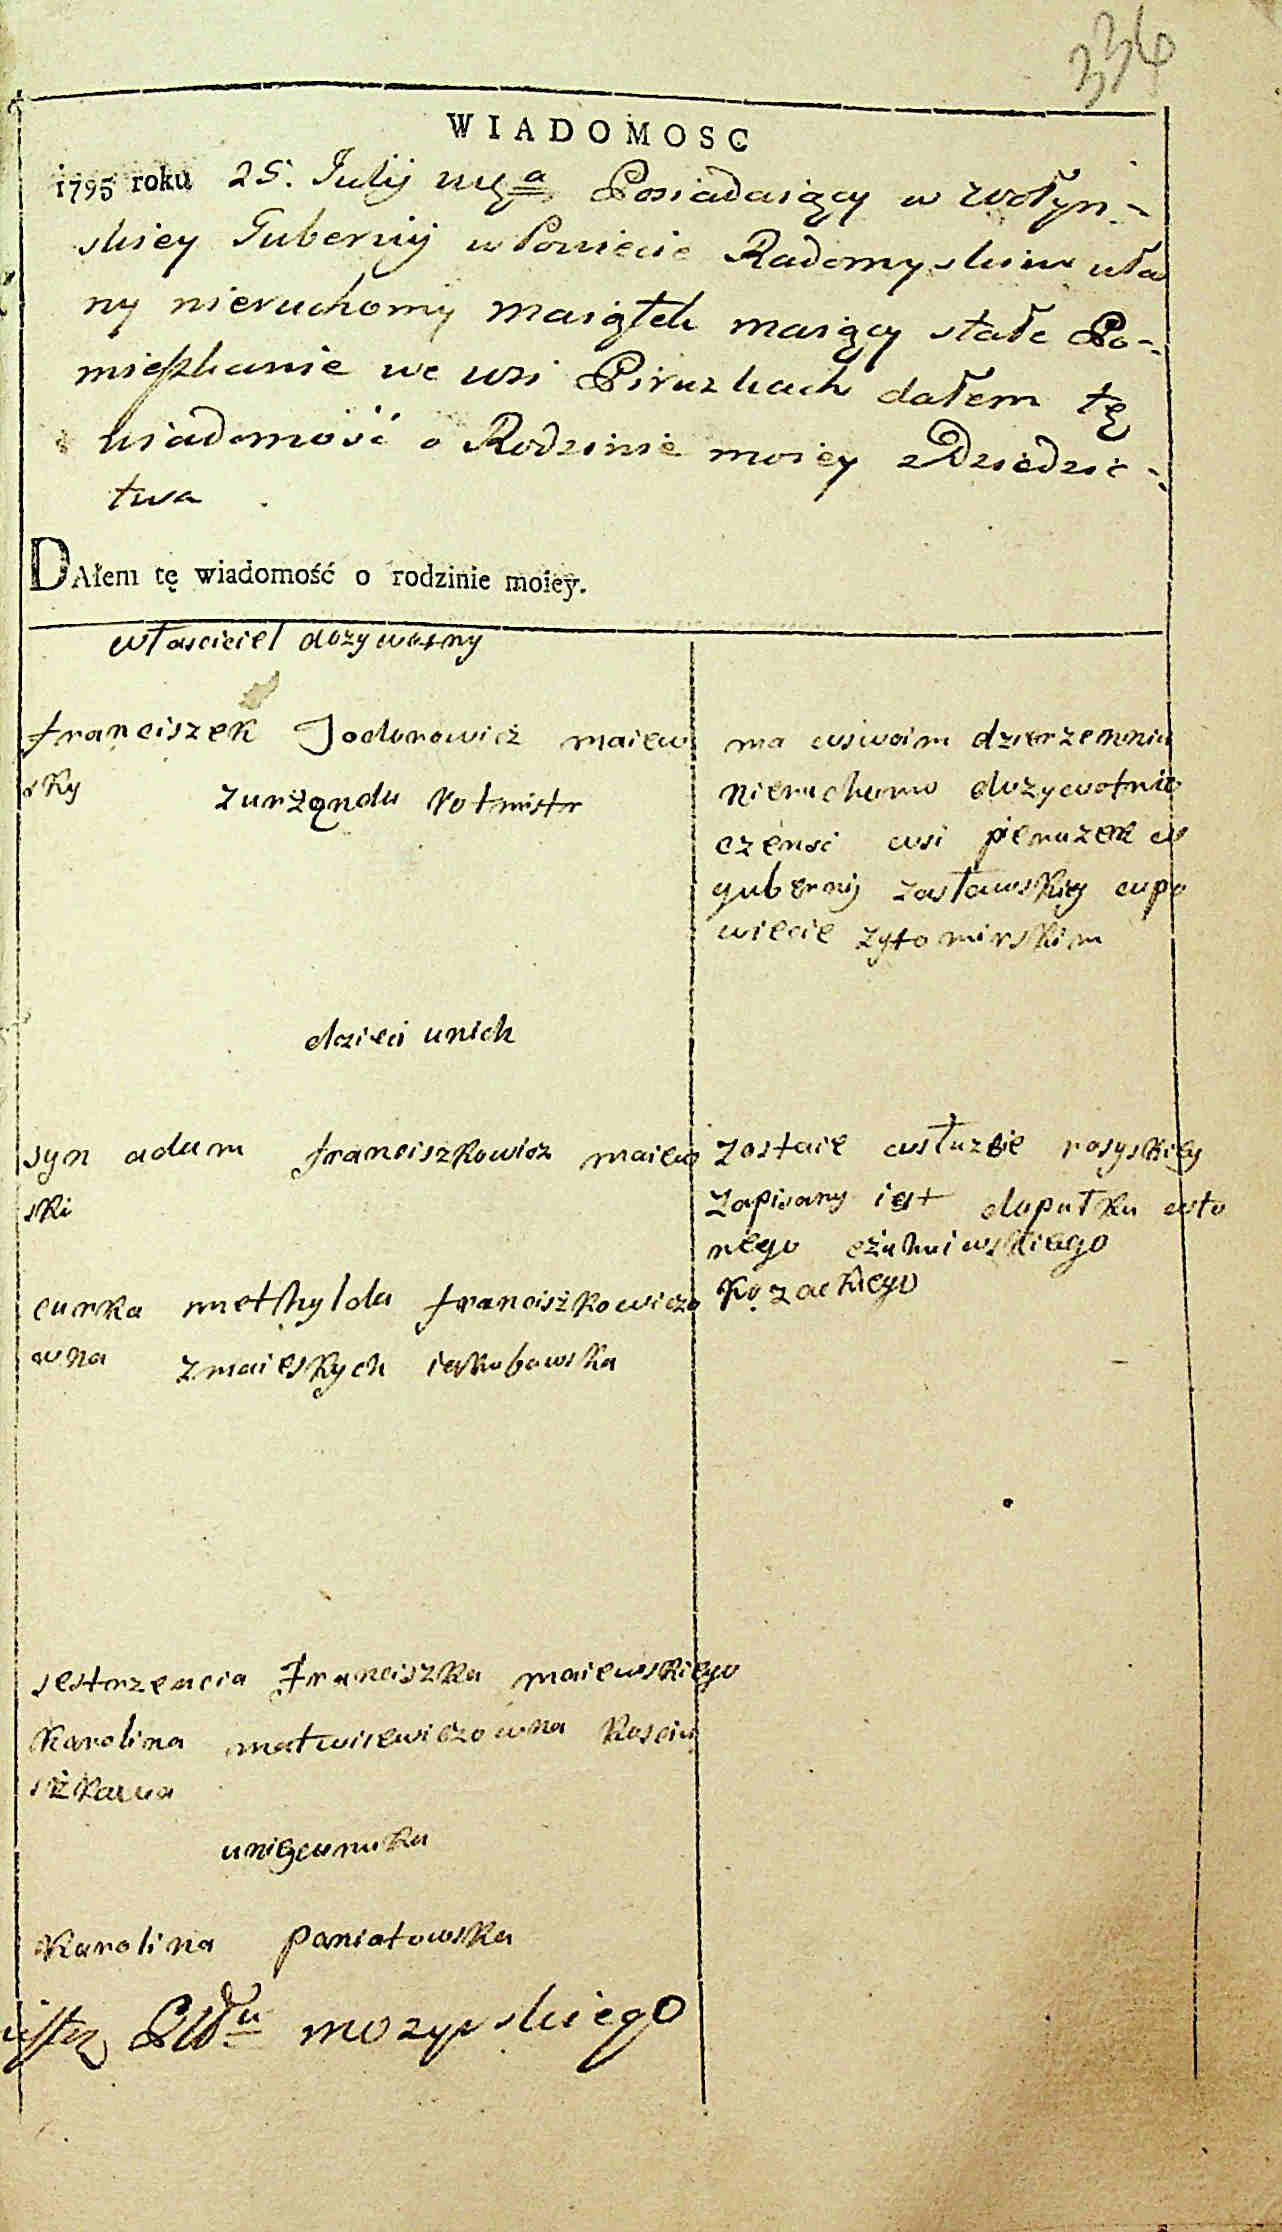 336
WIADOMOSC
1795 roku 25. Julij Posiadaiący w wołyn-
skiey Gubernij w Powiecie Radomyslskim wła
ny nieruchomy maiątek maiący stałe Po-
mieszkanie we wsi Piruzkach dałem tę
wiadomość o Rodzinie moiey z Dziedzic-
twa
DAłem tę wiadomość o rodzinie moiey.
własciciel dozywotny
franciszek Jodorowicz maiew
sky zurżąndu Rotmistr
ma wswoim dzierzenniu
nieruchomo dozywotnie
czensć wsi pieruzek w
gubernij zasławskiey wpo
wiecie zytomirskim
dzieci unich
syn adam franciszkowicz maiew
ski
zostaie wsłuzbie rosyskiey
zapisany iest dopułku wto
rego czuhuiewskiego
kozackiego
curka methylda franciszkowiczo
wna zmaieskych iakubowska
sestrzencia franciszka maiewskiego
Karolina matwiewiczowna Kosciu
szkowa
unieywnuka
Karolina paniatowska
mozyrskiego